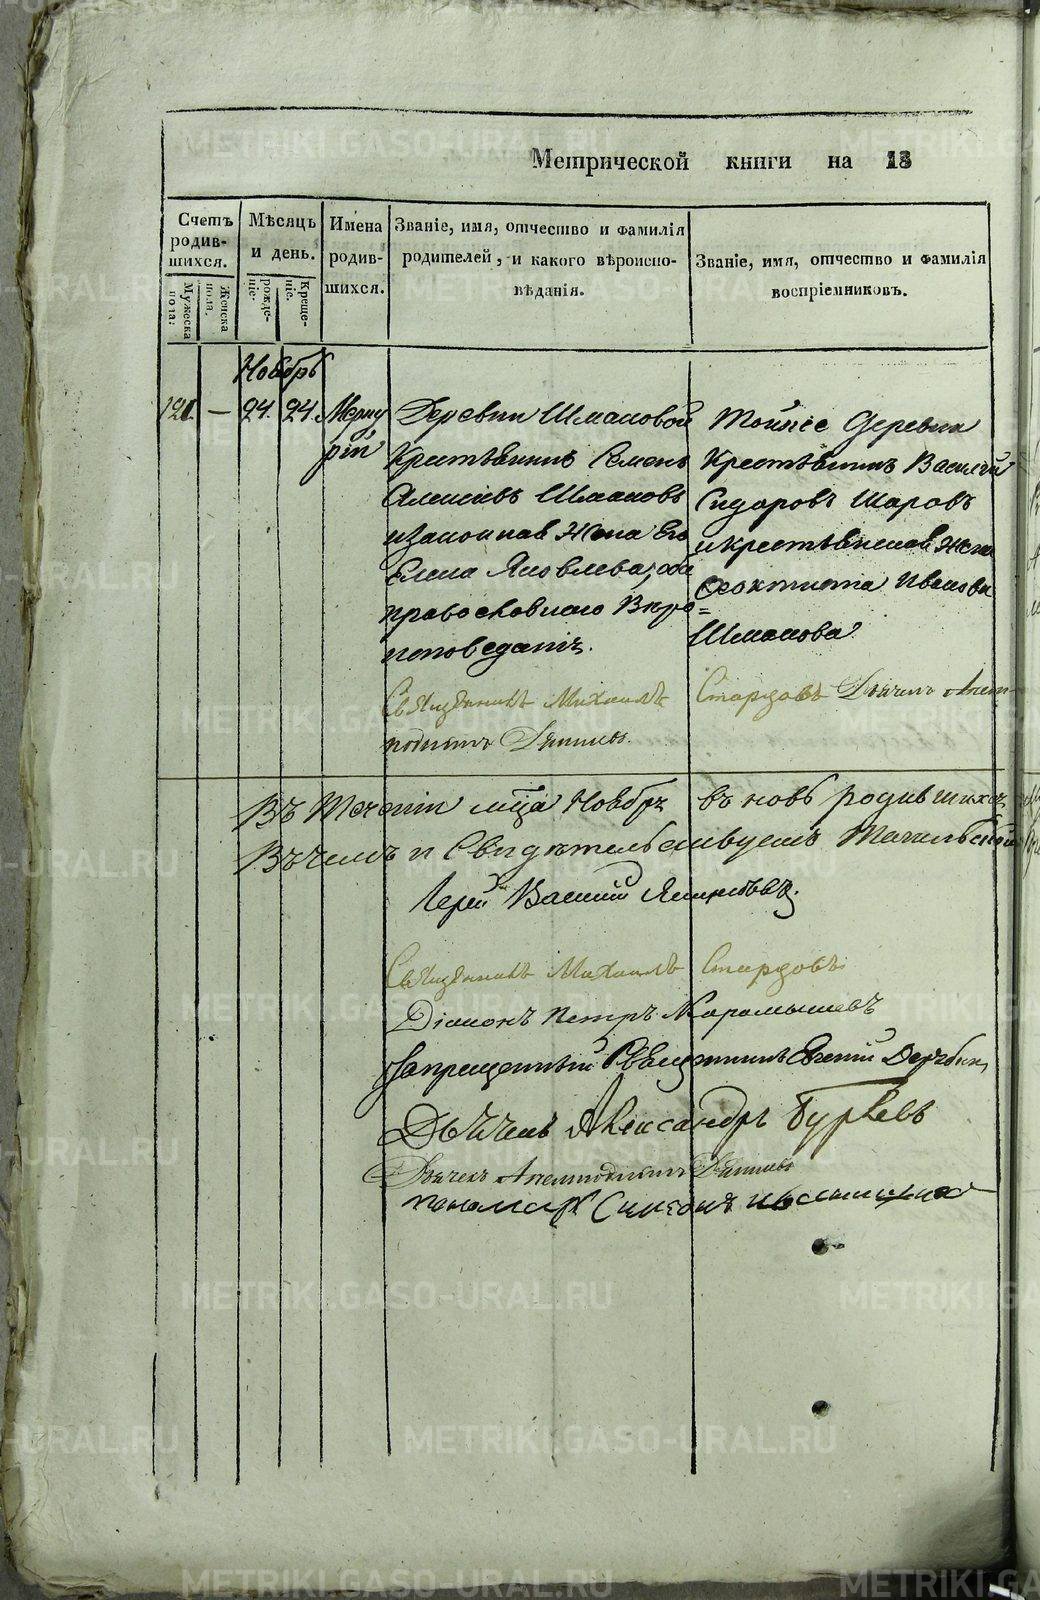 Метрической книги на 18
Счетъ родившихся.
Мужеска пола.
Женска пола.
Мѣсяць и день.
рожденіе.
Крещеніе.
Имена родившихся.
Званіе, имя, отчество и фамилія
родителей, и какого вѣроиспо-
вѣданія.
Званіе, имя, отчество и фамилія
воспріемниковъ.
Ноябрь
121. — 24. 24. Мерку
рій
Деревни Шмаковой
Крестьянинъ Семенъ
Алексіевъ Шмаковъ
и законная Жена Его
Елена Яковлева, оба
православнаго Вѣро=
исповеданія.
Тойже Деревни
Крестьянинъ Василий
Сидоровъ Шаровъ
и крестьянская Жена
Феоктиста Иванова
Шмакова
Священникъ Михаилъ Дьячекъ
Въ Теченіи мца Ноября въ новь родившихся
Въ чемъ и Свидѣтельствуемъ
Іерей Василий
Священникъ Михаилъ
Діаконъ Петръ Карамышевъ
Запрещенный Священникъ Евгений
Дьячекъ Александръ
Дьячекъ
Пономарь
METRIKI.GASO-URAL.RU